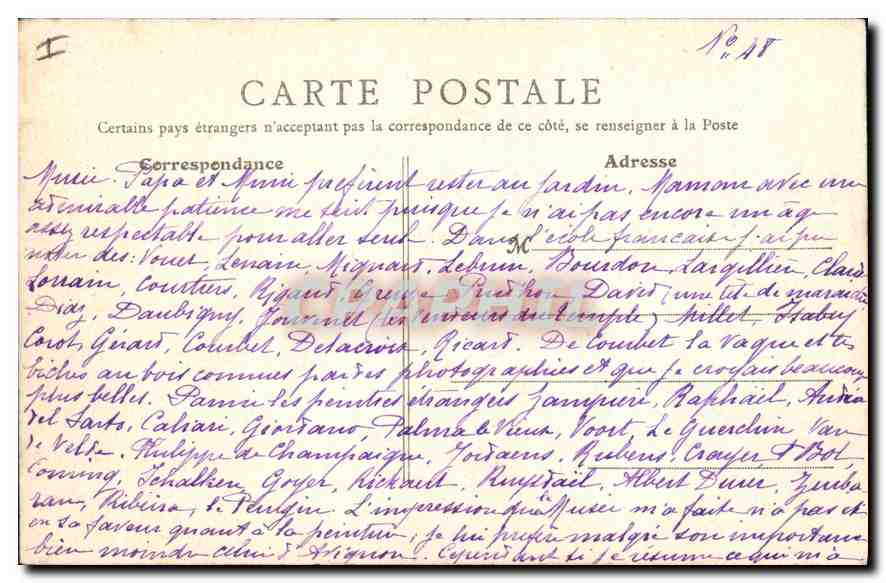 I
No 48
CARTE POSTALE
Certains pays étrangers n'acceptant pas la correspondance de ce côté, se renseigner à la Poste
Correspondance
Adresse
Musée. Papa et Mimi préfèrent rester au jardin. Maman avec une
admirable patience me suit puisque je n'ai pas encore un âge
assez respectable pour aller seule. Dans l'école française j'ai pu
noter des: Vouet, Lenain, Mignard, Lebrun, Bourdon, Largillière, Claude
Lorrain, Courtiers, Rigaud, Greuze, Prudhon, David (une tête de maraîchère
Diaz, Daubigny, Jouvenet (les vendeurs du temple), Millet, Isabey
Corot, Gérard, Courbet, Delacroix, Ricard. De Courbet la Vague et les
biches au bois connues par des photographies et que je croyais beaucoup
plus belles. Parmi les peintres étrangers Zampieri, Raphaël, Andréa
del Sarto, Caliari, Giordano, Palma le Vieux, Voort, Le Guerchin, Van
de Velde, Philippe de Champaigne, Jordaens, Rubens, Crayer, Bol,
Coning, Schalken, Goyer, Rickaert, Ruysdaël, Albert Durer, Zurba
ran, Ribeira, le Perugin. L'impression que le Musée m'a faite n'a pas été
en sa faveur quant à la peinture; je lui préfère malgré son importance
bien moindre celui d'Avignon. Cependant si je résume ce qui m'a